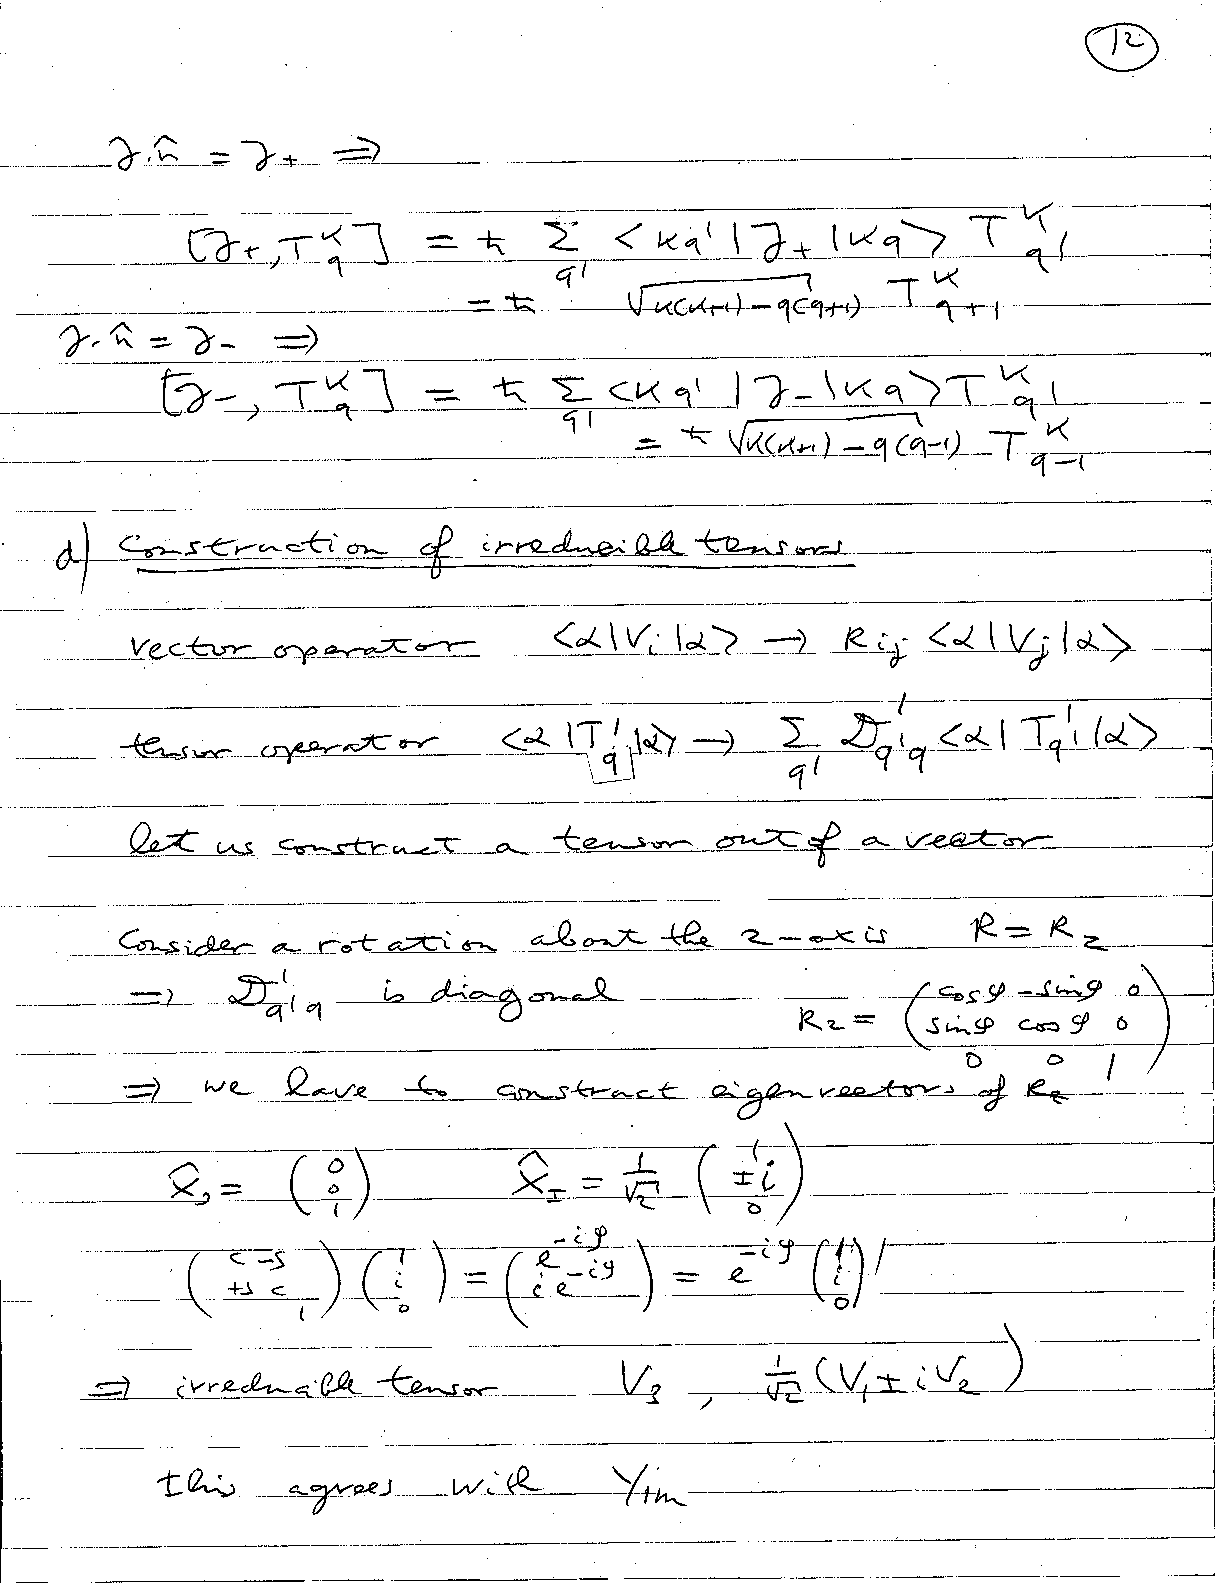 12
J·n̂ = J+ ⇒
[J+, T^K_q] = ħ Σ_q' <Kq'|J+|Kq> T^K_q'
= ħ √(K(K+1) - q(q+1)) T^K_q+1
J·n̂ = J- ⇒
[J-, T^K_q] = ħ Σ_q' <Kq'|J-|Kq> T^K_q'
= ħ √(K(K+1) - q(q-1)) T^K_q-1
d) Construction of irreducible tensors
vector operator <α|V_i|α> → R_ij <α|V_j|α>
tensor operator <α|T^1_q|α> → Σ_q' D^1_q'q <α|T^1_q'|α>
let us construct a tensor out of a vector
Consider a rotation about the z-axis R = R_z
⇒ D^1_q'q is diagonal
R_z = (cosφ -sinφ 0
sinφ cosφ 0
0 0 1)
⇒ we have to construct eigenvectors of R_z
x̂_0 = (0 0 1) x̂_± = 1/√2 (1 ±i 0)
(c -s +s c 1) (1 i 0) = (e^-iφ i e^-iφ) = e^-iφ (1 i 0)
⇒ irreducible tensor V_3 , 1/√2 (V_1 ± iV_2)
this agrees with Y_1m